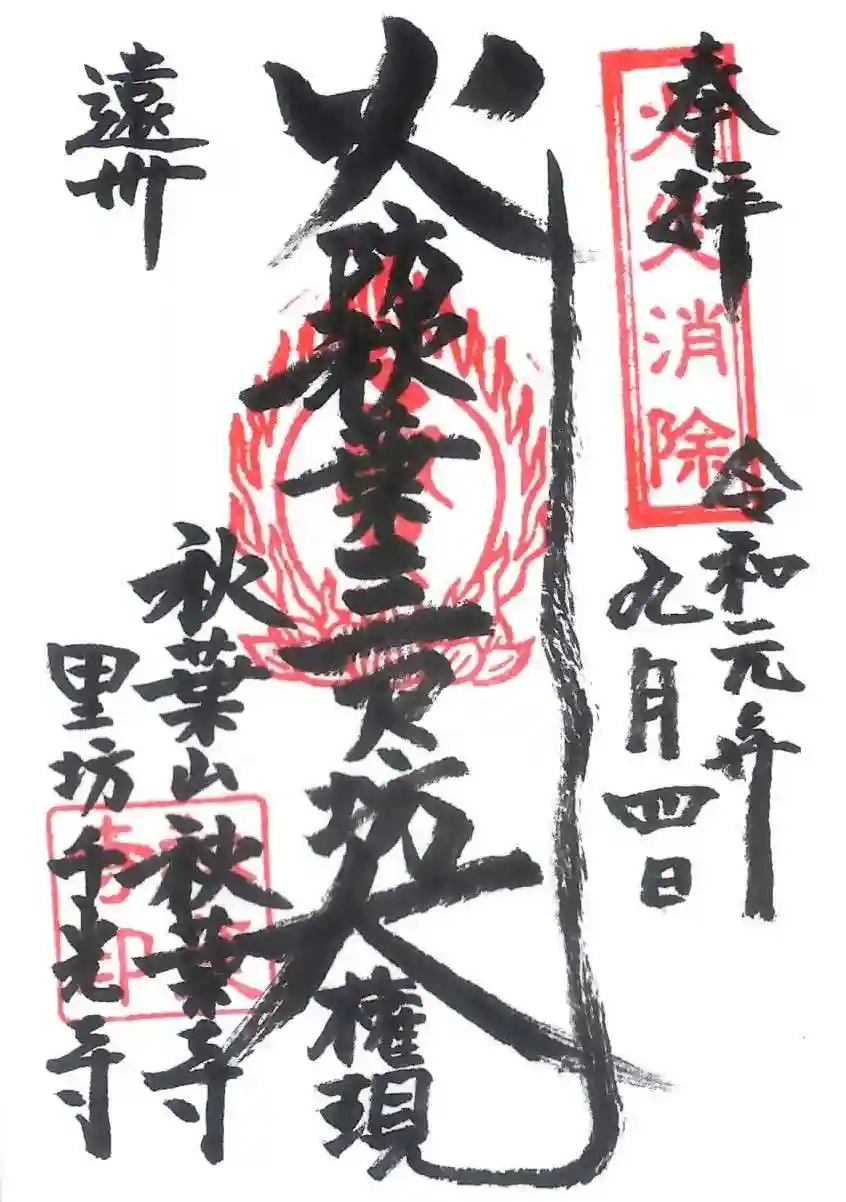 奉拝
火災消除
令和元年
九月四日
火防秋葉三尺坊大権現
遠州
秋葉山秋葉寺
里坊千光寺